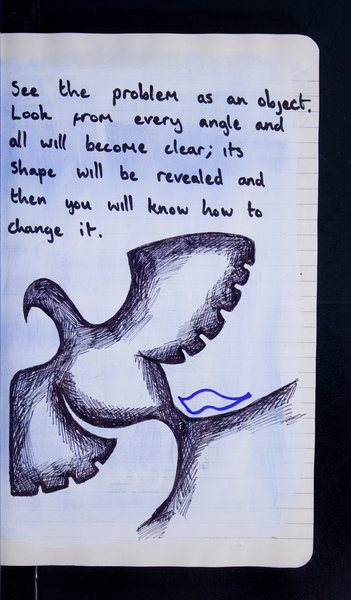 See the problem as an object.
Look from every angle and
all will become clear; its
shape will be revealed and
then you will know how to
change it.